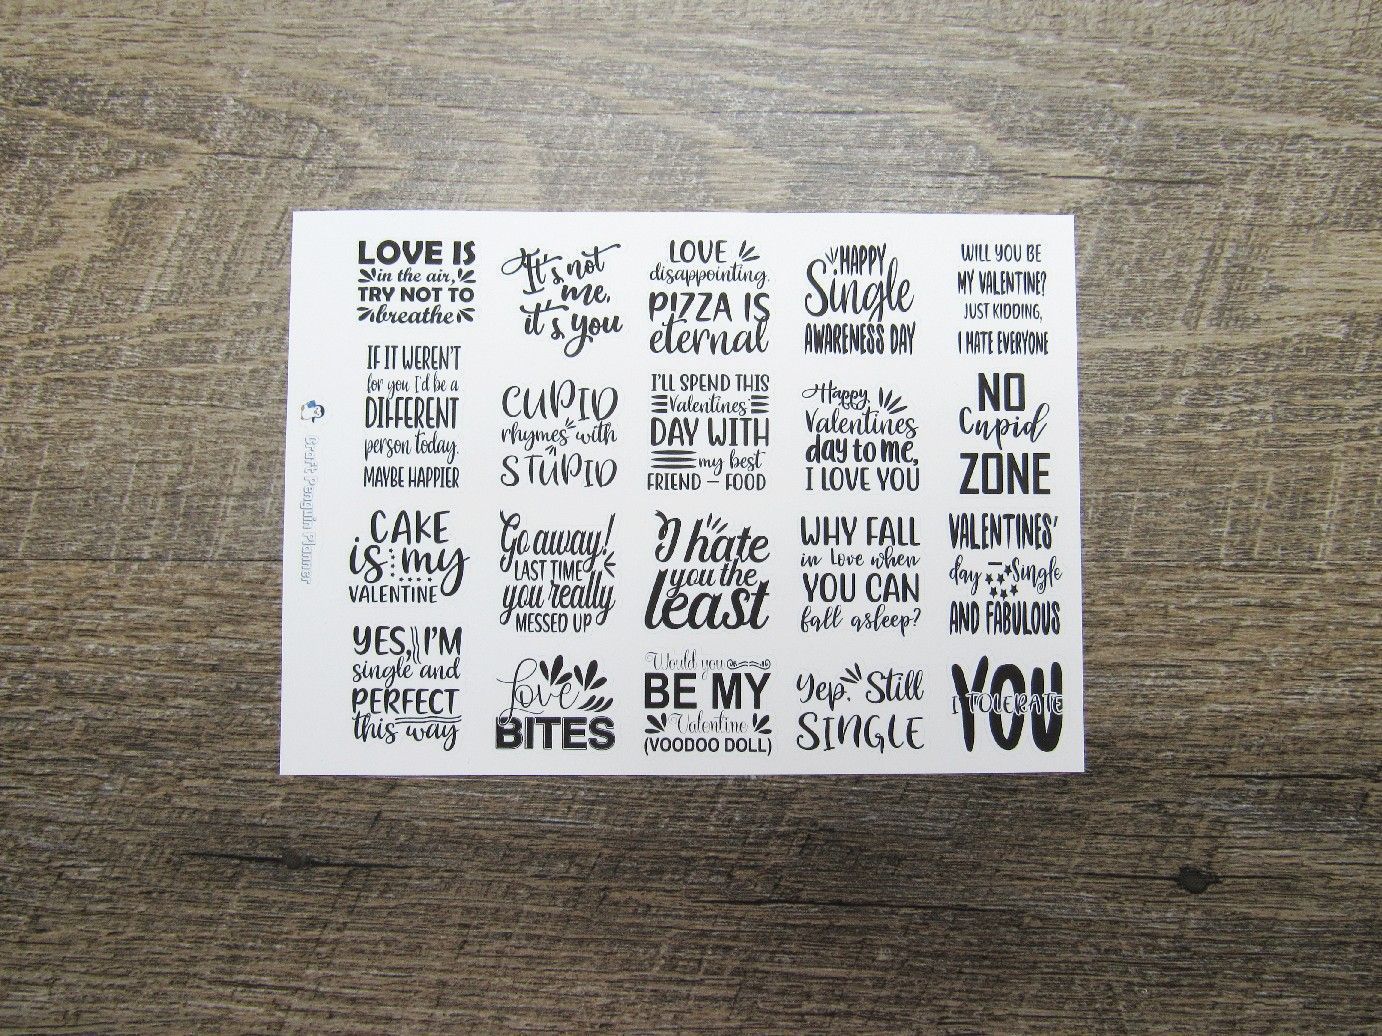 LOVE IS
in the air,
TRY NOT TO
breathe
It's not
me,
it's you
LOVE
disappointing.
PIZZA IS
eternal
HAPPY
Single
AWARENESS DAY
WILL YOU BE
MY VALENTINE?
JUST KIDDING,
I HATE EVERYONE
IF IT WEREN'T
for you I'd be a
DIFFERENT
person today.
MAYBE HAPPIER
CUPID
rhymes with
STUPID
I'LL SPEND THIS
Valentines'
DAY WITH
my best
FRIEND – FOOD
Happy
Valentines
day to me,
I LOVE YOU
NO
Cupid
ZONE
CAKE
is my
VALENTINE
Go away!
LAST TIME
you really
MESSED UP
I hate
you the
least
WHY FALL
in love when
YOU CAN
fall asleep?
VALENTINES'
day – Single
AND FABULOUS
YES, I'M
single and
PERFECT
this way
Love
BITES
Would you
BE MY
Valentine
(VOODOO DOLL)
Yep. Still
SINGLE
I TOLERATE
YOU
Craft Penguin Planner